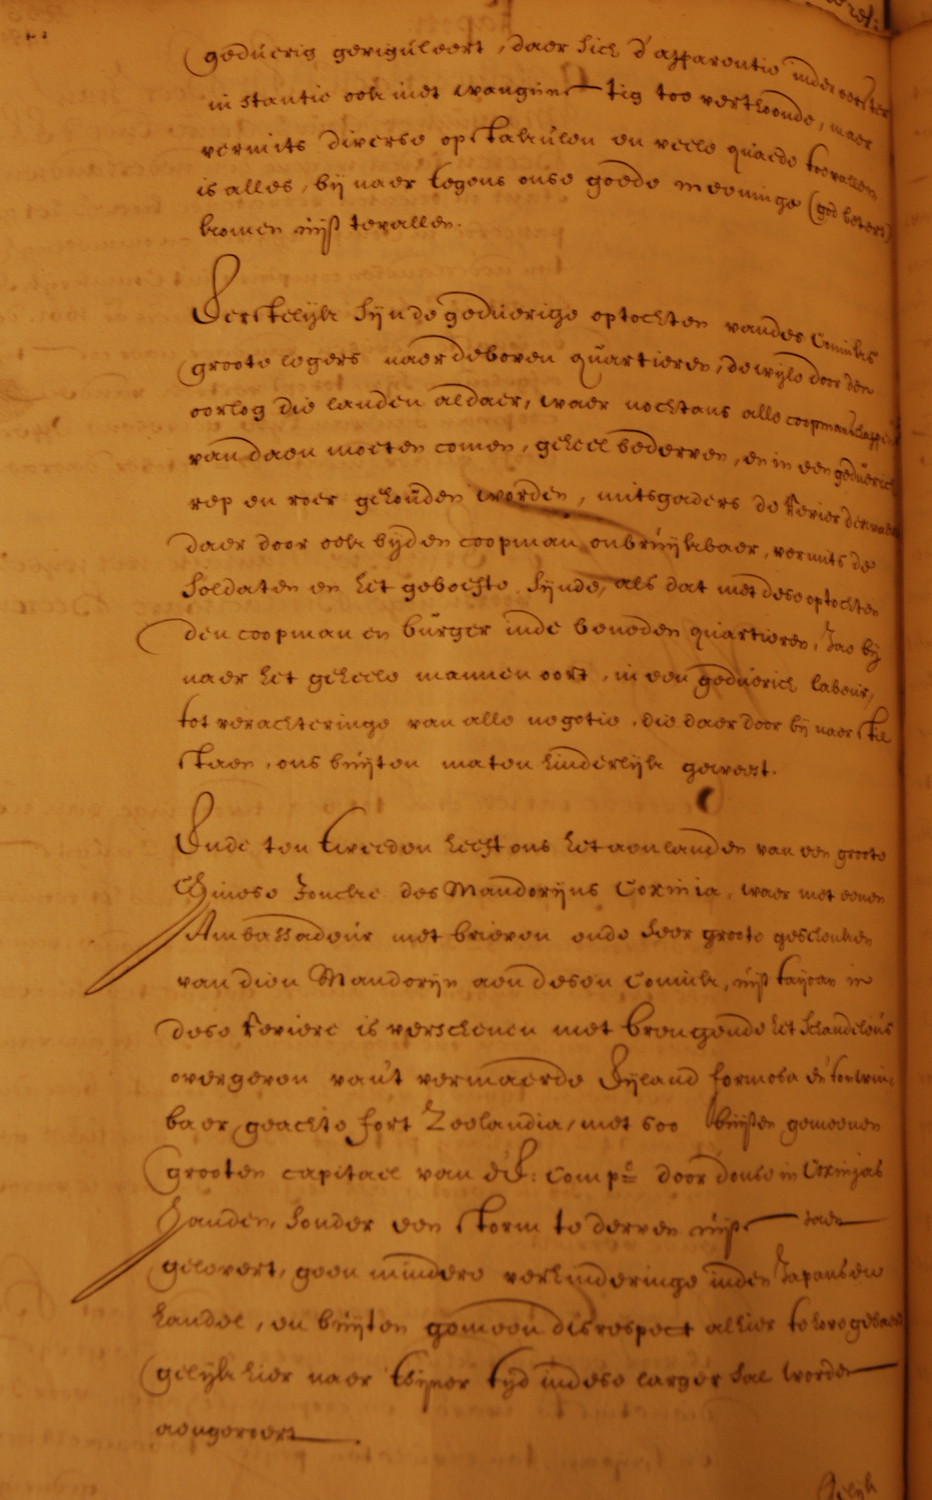 geduerig gereguleert, daer sich d'apparentie inder eerster
instantie ook niet wangunstig toe verthoonde, maer
vermits diverse opstakulen en veele quaede toevallen
is alles, bij naer tegens onse goede meeninge (god beter't)
komen uijt te vallen.
Eerstelijk sijnde geduerige optochten vandes Coninks
groote legers naer de boven quartieren, dewijle door den
oorlog die landen aldaer, waer nochtans alle coopmanschappen
van daen moeten comen, geheel bederven, en in een geduerich
rep en roer gehouden worden, mitsgaders de revier derwaerts
daer door ook bij den coopman onbruijkbaer, vermits de
soldaten en het geboefte sijnde, als dat met dese optochten
den coopman en burger inde beneden quartieren, Jae bij
naer het geheele mannen oort, in een geduerich labeur,
tot verachteringe van alle negotie, die daer door bij naer stil
staen, ons buijten maten hinderlijk geweest.
Ende ten tweeden heeft ons het aenlanden van een groote
Chinese Joncke des Mandorijns Coxinia, waer met eenen
Ambassadeur met brieven ende seer groote geschenken
van dien Mandorijn aen desen Conink, uijt taijoan in
dese reviere is verschenen met brengende het schandeleus
overgeven van't vermaerde Eijland formosa en t'onwin-
baer geachte fort Zeelandia, met soo buijten gemeenen
grooten capitael van d'E: Compe door donse in Coxinjas
handen, sonder een storm te derven uijt staen
gelevert, geen mindere verhinderinge inden Japansen
handel, en buijten gemeen disrespect alhier te lore gebaert
gelijk hier naer t'sijner tijd in dese larger sal worden
aengeroert.
Gelijk